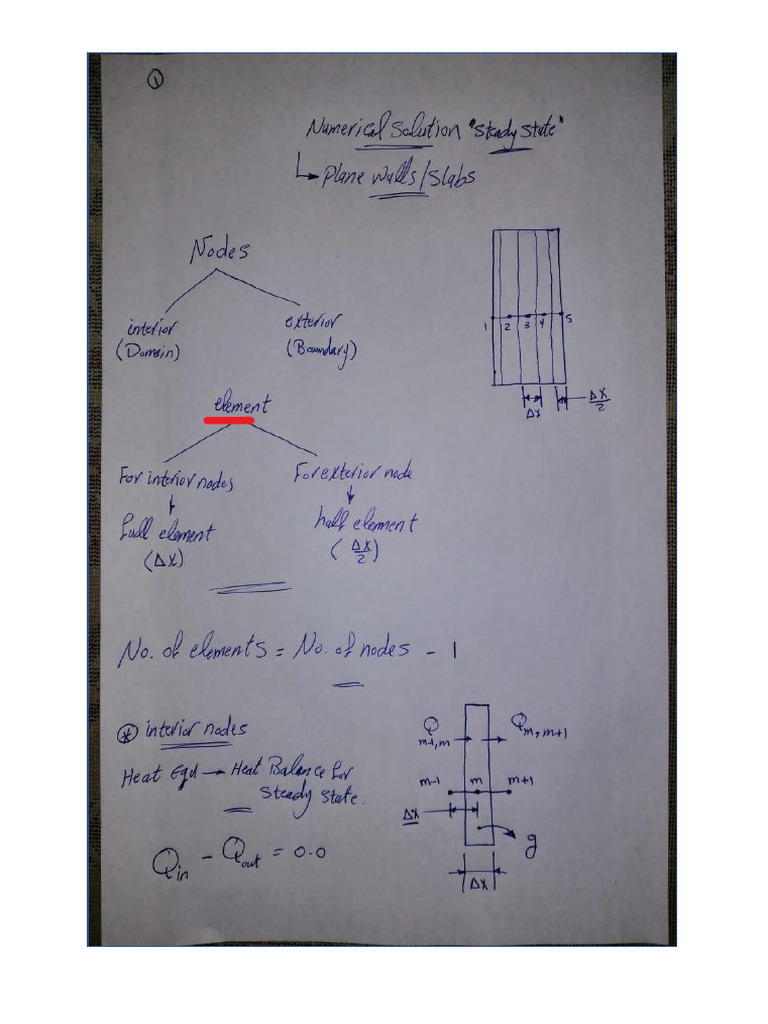 1
Numerical Solution "Steady State"
↳ Plane Walls/Slabs
Nodes
interior
(Domain)
exterior
(Boundary)
1 2 3 4 5
Δx
Δx/2
element
For interior nodes
↓
Full element
(Δx)
For exterior node
↓
half element
(Δx/2)
No. of elements = No. of nodes - 1
* interior nodes
Heat Equ → Heat Balance for
Steady State.
Q_in - Q_out = 0.0
Q_m-1,m
Q_m,m+1
m-1 m m+1
Δx
g
Δx